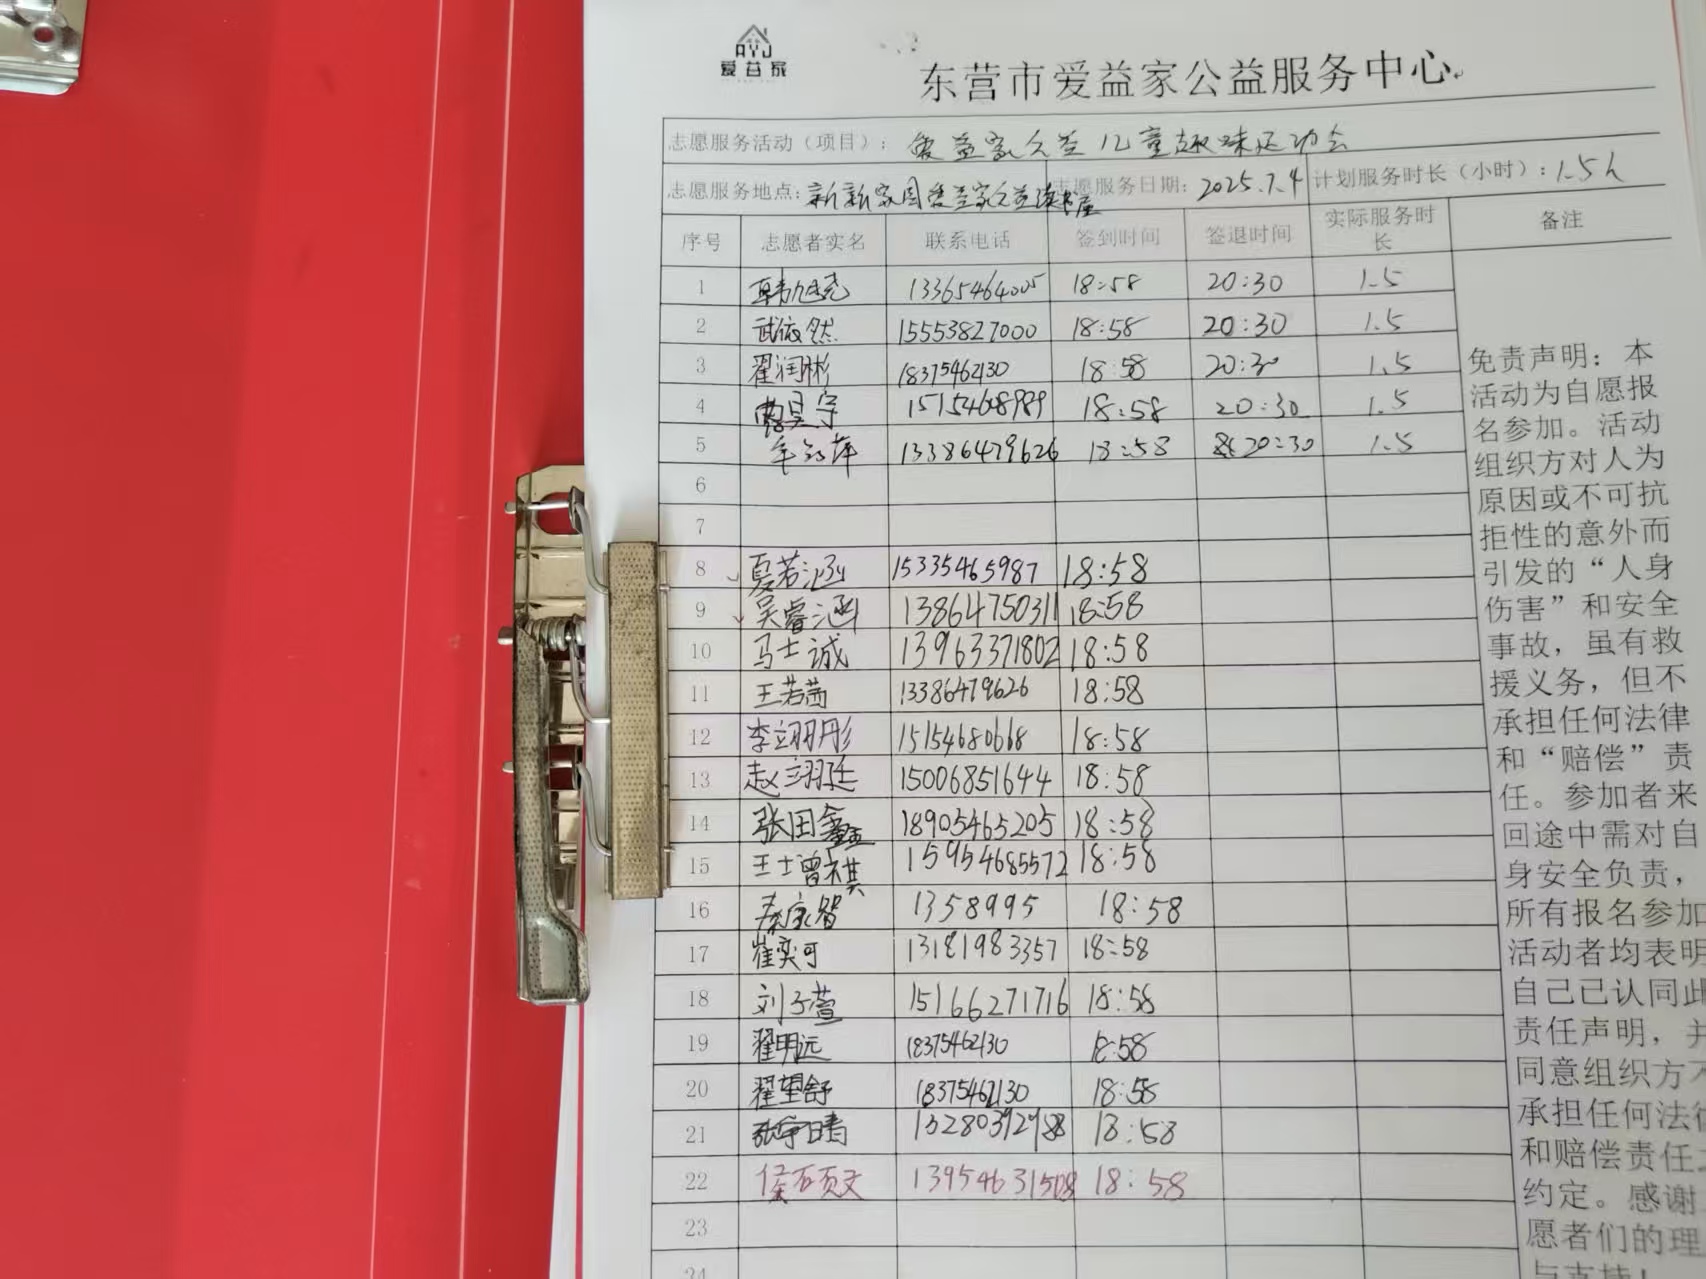 AYJ
爱益家
东营市爱益家公益服务中心
志愿服务活动（项目）：爱益家公益儿童趣味运动会
志愿服务地点：新新家园爱益家公益读书屋 志愿服务日期：2025.7.4 计划服务时长（小时）：1.5h
序号 志愿者实名 联系电话 签到时间 签退时间 实际服务时长 备注
1 韩旭尧 13365464005 18:58 20:30 1.5
2 武俊然 15553827000 18:58 20:30 1.5
3 翟润彬 18375462130 18:58 20:30 1.5
4 昊宇 15154608989 18:58 20:30 1.5
5 13386479626 18:58 20:30 1.5
6
7
8 夏若涵 15335465987 18:58
9 吴睿涵 13864750311 18:58
10 马士诚 13963371802 18:58
11 王若茜 13386479626 18:58
12 李翊彤 15154680668 18:58
13 赵翊廷 15006851644 18:58
14 张田鑫 18905465205 18:58
15 王士曾祺 15954685572 18:58
16 秦家智 1358995 18:58
17 崔奕可 13181983357 18:58
18 刘子萱 15166271716 18:58
19 翟明远 18375462130 18:58
20 翟望舒 18375462130 18:58
21 张宇晴 18:58
22 侯硕文 18:58
23
24
免责声明：本
活动为自愿报
名参加。活动
组织方对人为
原因或不可抗
拒性的意外而
引发的“人身
伤害”和安全
事故，虽有救
援义务，但不
承担任何法律
和“赔偿”责
任。参加者来
回途中需对自
身安全负责，
所有报名参加
活动者均表明
自己已认同此
责任声明，并
同意组织方不
承担任何法律
和赔偿责任
约定。感谢
愿者们的理
与支持！